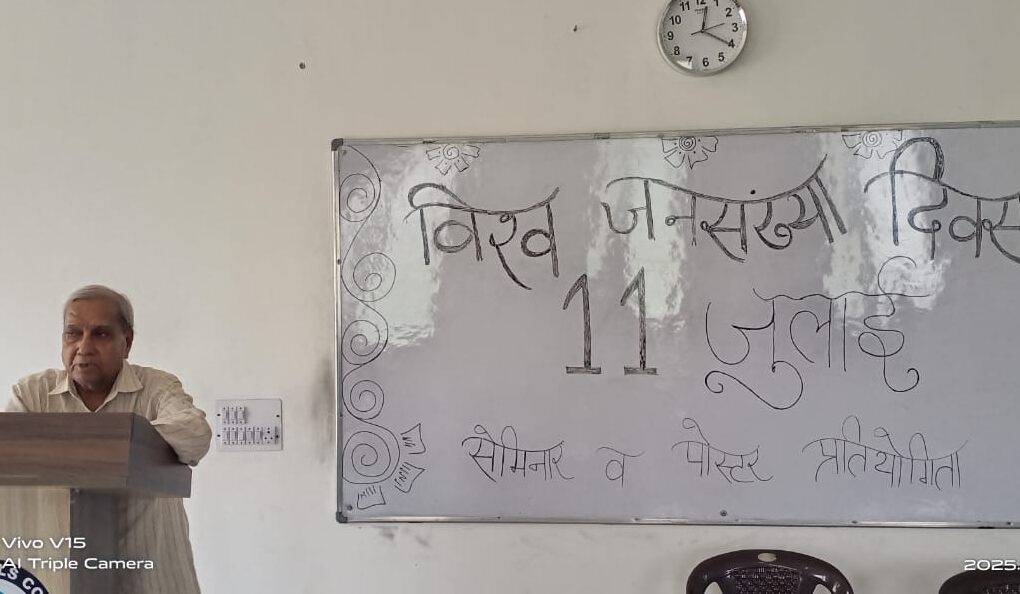 विश्व जनसंख्या दिवस
11 जुलाई
सेमिनार व पोस्टर प्रतियोगिता
11 12 1
10 2
9 3
8 4
7 6 5
Vivo V15
AI Triple Camera
2025.
LS CO